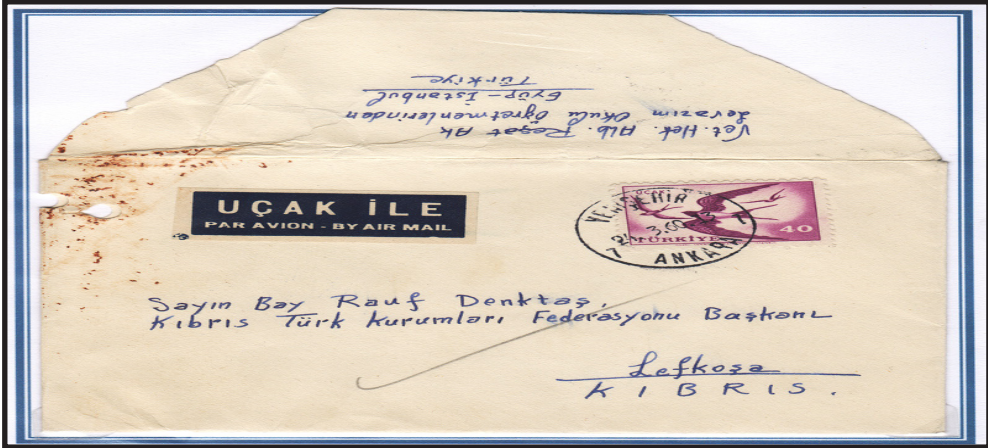 Vet. Hek. Alb. Reşat Ak
Levazım Okulu Öğretmenlerinden
Eyüp - İstanbul
Türkiye
UÇAK İLE
PAR AVION - BY AIR MAIL
YENİŞEHİR
3.60
ANKARA
TÜRKİYE
40
Sayın Bay Rauf Denktaş,
Kıbrıs Türk Kurumları Federasyonu Başkanı
Lefkoşa
KIBRIS.